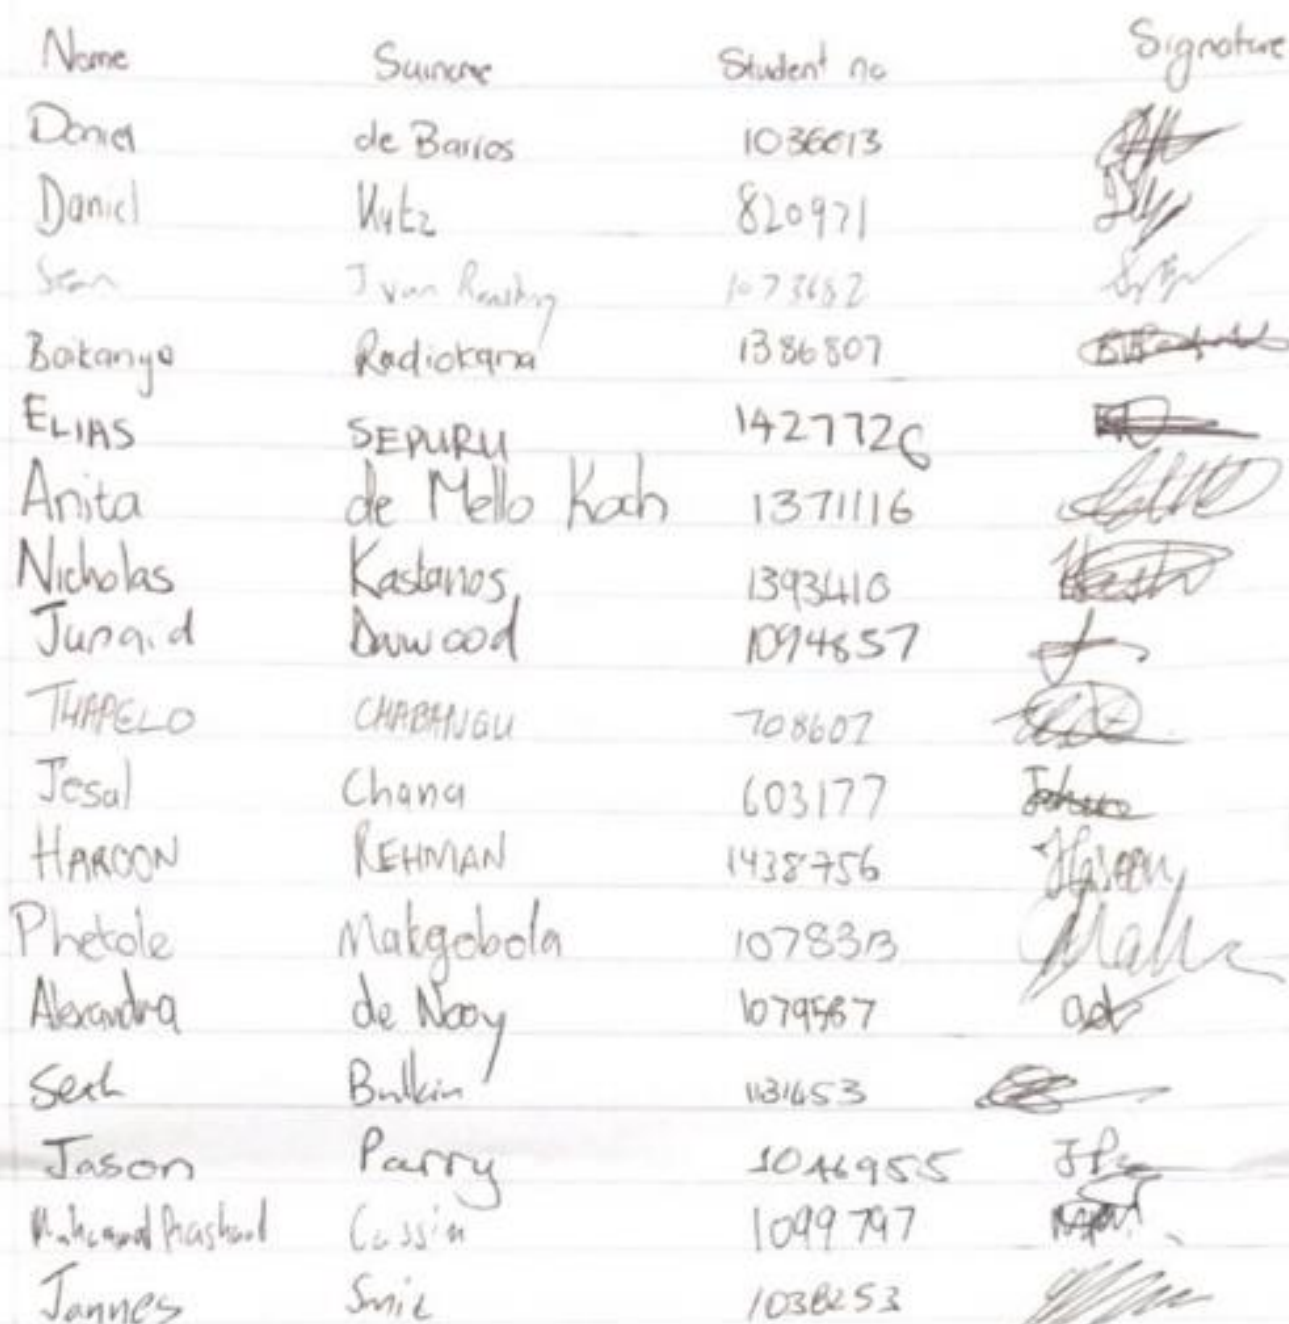 Name Surname Student no Signature
Daniel de Barros 1036613
Daniel Kutz 820971
Sean J van 1073682
Boikanyo Radiokana 1386807
ELIAS SEPURU 1427726
Anita de Mello Koch 1371116
Nicholas Kastanos 1393410
Junaid Dawood 1094857
THAPELO CHABANGU 708607
Jesal Chana 603177
HAROON REHMAN 1438756 Haroon
Phetole Makgobola 1078313
Alexandra de Nooy 1079567
Seth Bulkin 1131653
Jason Parry 1046955 JP
Cassim 1099797
Jannes Smit 1038253